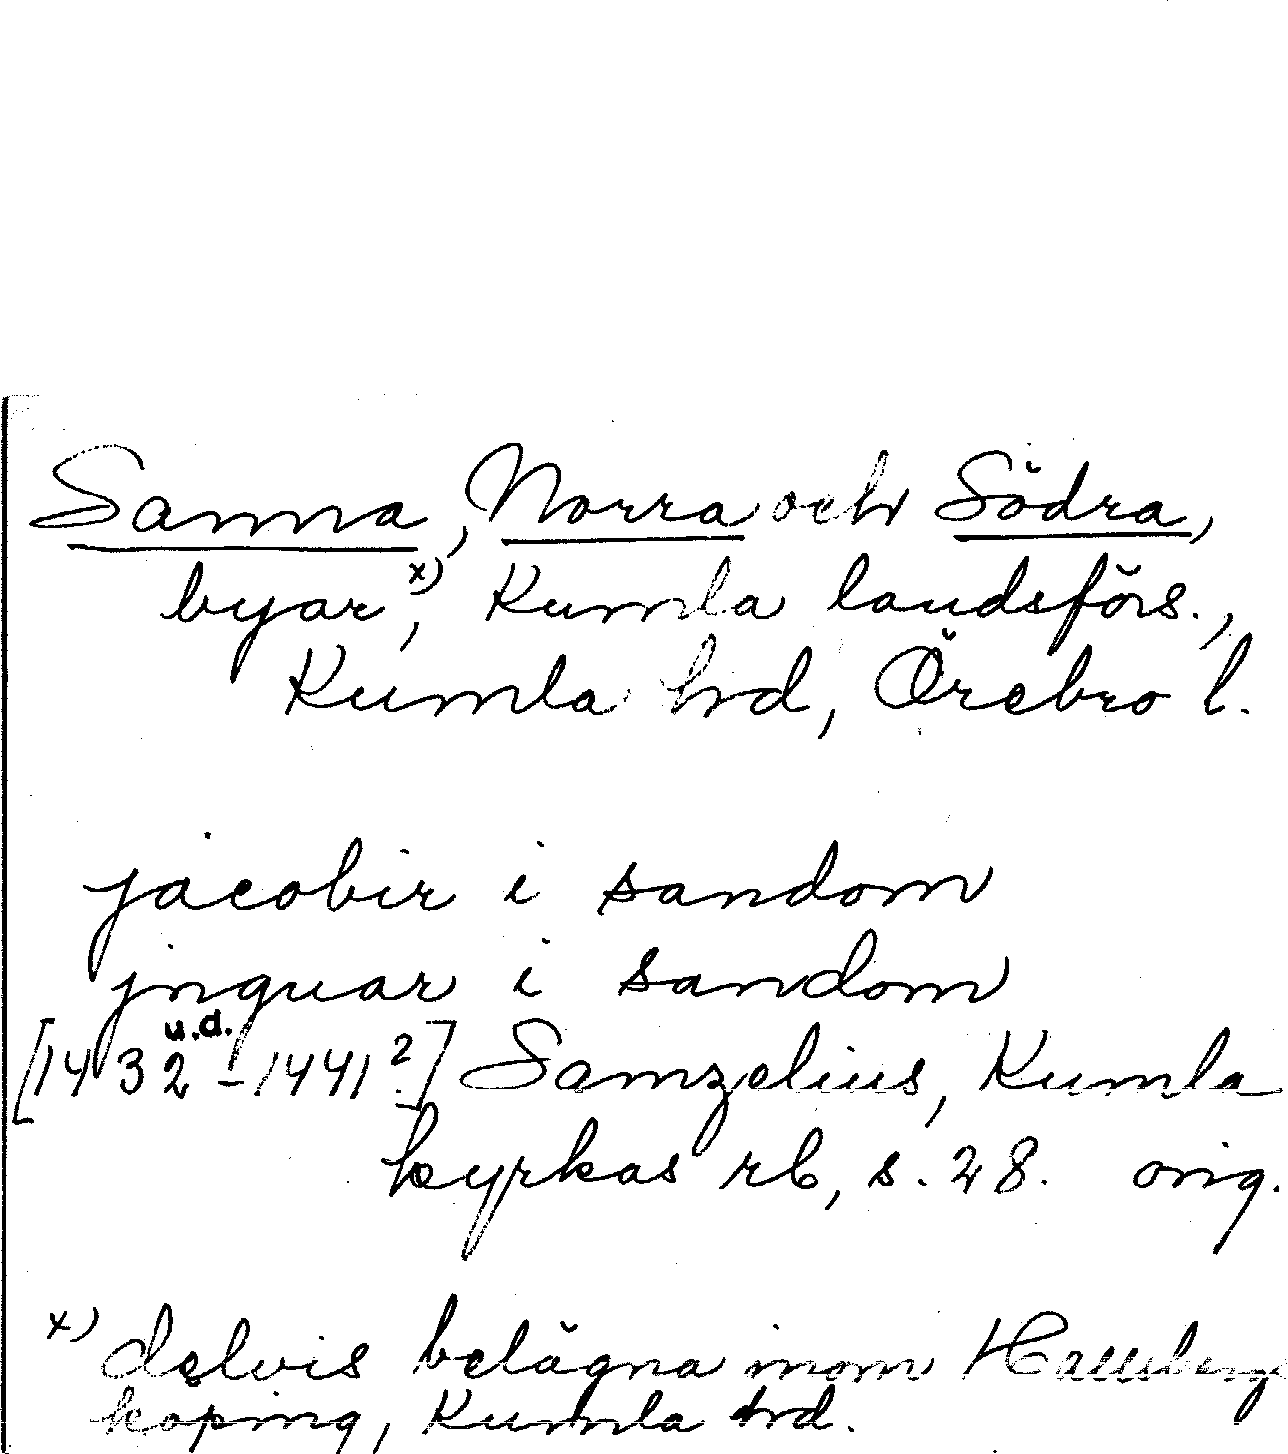 Sanna, Norra och Södra,
byar x), Kumla landsförs.,
Kumla hrd, Örebro l.
jacobir i sandom
jnguar i sandom
u.d.
[1432-1441?] Samzelius, Kumla
kyrkas rb, s. 28. orig.
x) delvis belägna inom Hallsbergs
köping, Kumla hrd.